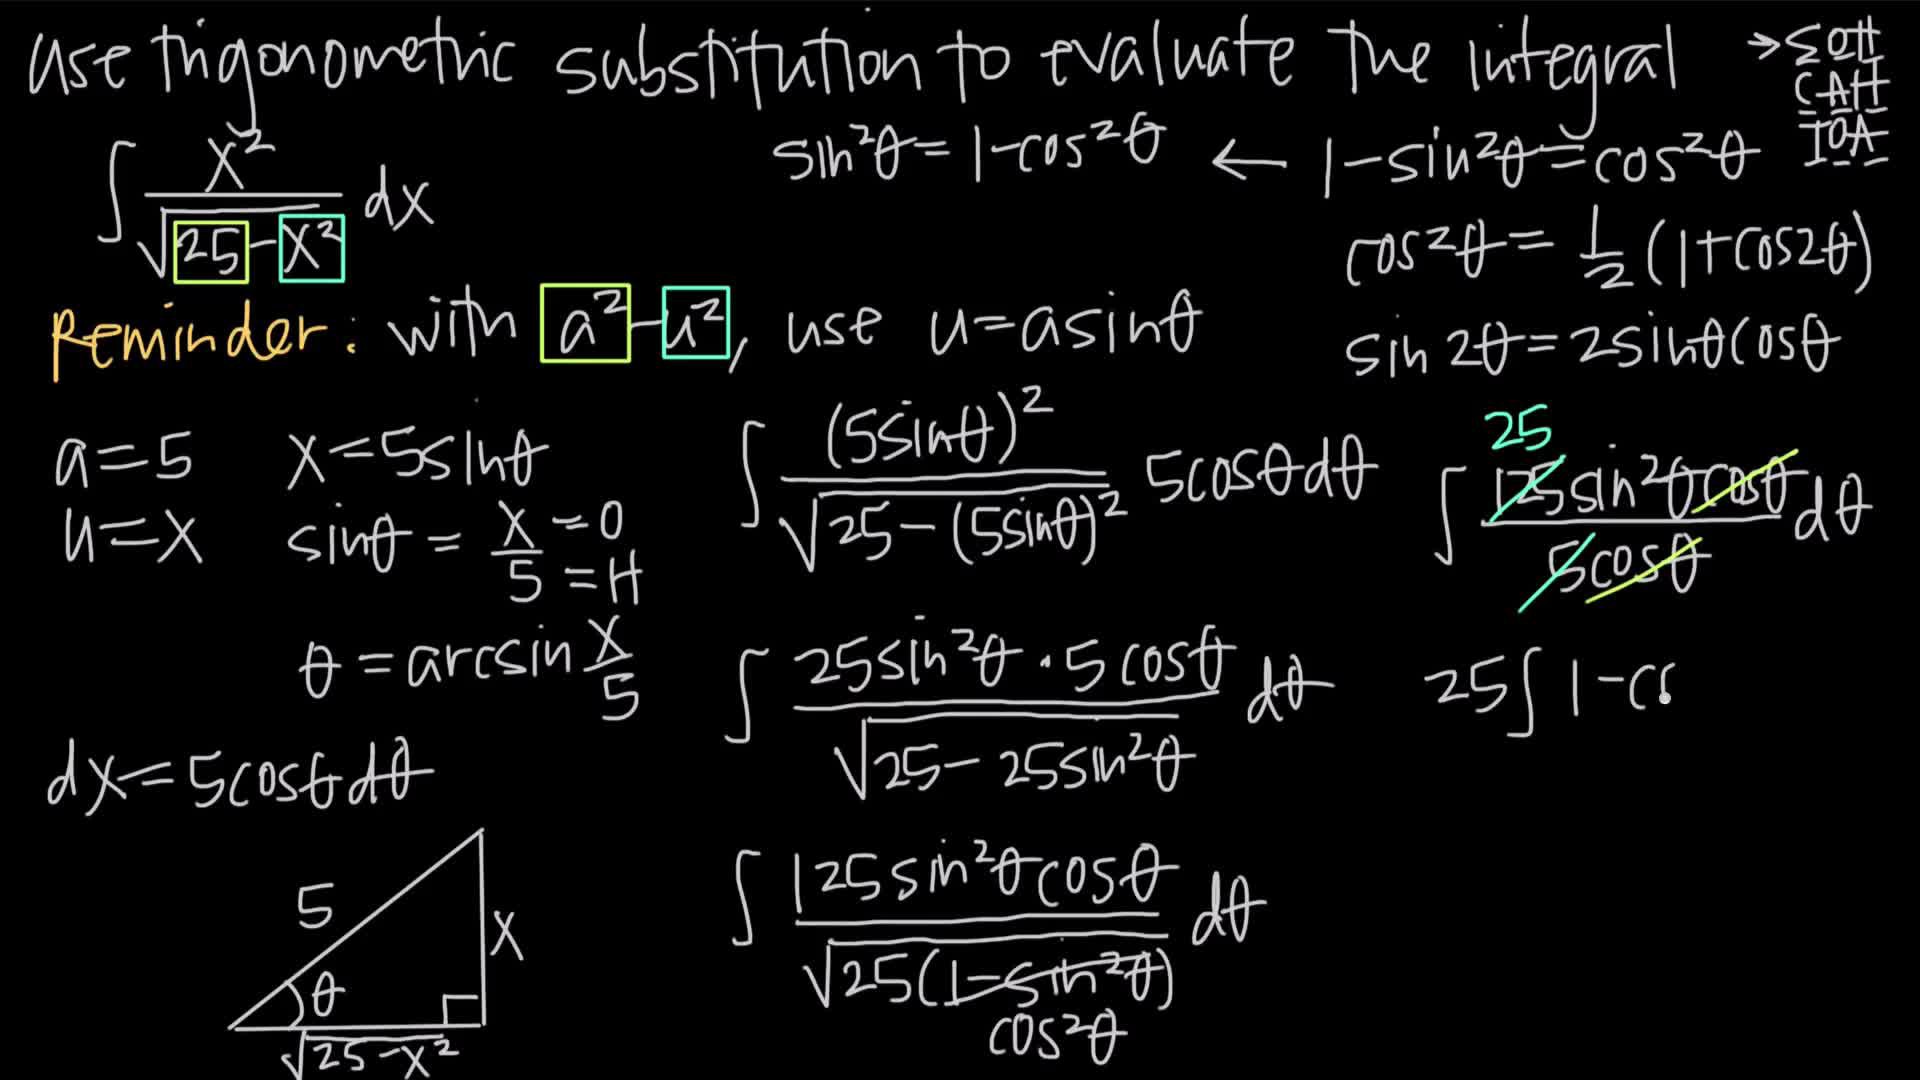 use trigonometric substitution to evaluate the integral → SOH
CAH
TOA
∫ x² / √(25-x²) dx
sin²θ = 1-cos²θ ← 1-sin²θ=cos²θ
cos²θ = 1/2 (1+cos2θ)
Reminder: with a²-u², use u=asinθ
sin 2θ=2sinθcosθ
a=5 x=5sinθ
u=x sinθ = x/5 =O =H
θ = arcsin x/5
dx=5cosθdθ
5
x
θ
√(25-x²)
∫ (5sinθ)² / √(25-(5sinθ)²) 5cosθdθ
∫ 25sin²θ · 5cosθ / √(25-25sin²θ) dθ
∫ 125sin²θcosθ / √(25(1-sin²θ)) dθ
cos²θ
25
∫ 125sin²θcosθ / 5cosθ dθ
25∫ 1-co